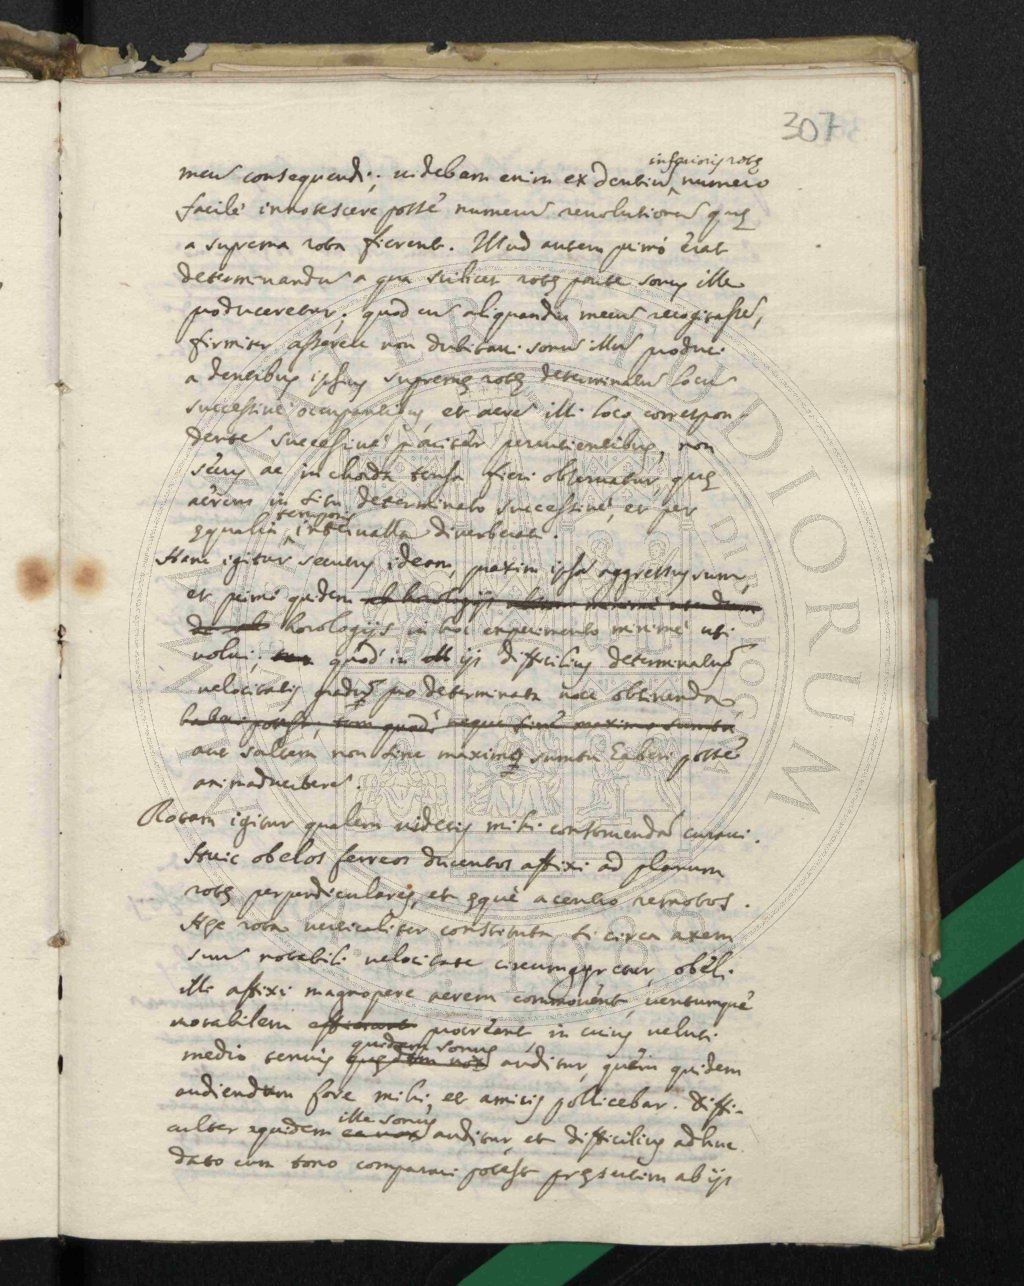 307
inferioris rotę
meū consequendi; videbam enim ex dentiū numero
facilè innotescere posse numerū revolutionū quę
a suprema rota fierent. Illud autem primò erat
determinandū a qua scilicet rotę parte sonus ille
produceretur; quod cū aliquandiu mecū recogitassē,
firmiter asserere non dubitavi sonū illū produci
a dentibus ipsius supremę rotę determinatū locū
successivè occupantibus, et aerē illi loco correspon-
dentē successivè pariter percutientibus, non
secus ac in chorda tensa fieri observatur, quę
aërem in situ determinato successivè, et per
temporis
ęqualia intervalla diverberat.
Hanc igitur secutus ideam, praxim ipsā aggressus sum,
et primò quidem ab horologijs
horologijs in hoc experimento minimè uti
volui; quod in ijs difficilius determinatus
velocitatis gradus pro determinata voce obtinenda
haberi possit, tum quod neque sine maximo sumptu
aut saltem non sine maximo sumptu haberi posse
animadverterē.
Rotam igitur qualem videtis mihi construendā curavi.
Huic obelos ferreos ducentos affixi ad planum
rotę perpendiculares, et ęquè a centro remotos.
Hęc rota verticaliter constituta si circa axem
suū notabili velocitate circumgyretur, obeli
illi affixi magnopere aerem commovent, ventumquè
notabilem efficiunt procreant, in cuius veluti
quidam sonus
medio tenuis quędam vox auditur, quem quidem
audiendum fore mihi, et amicis pollicebar. Diffi-
ille sonus
culter equidem ea vox auditur, et difficilius adhuc
dato cum tono comparari potest pręsertim ab ijs